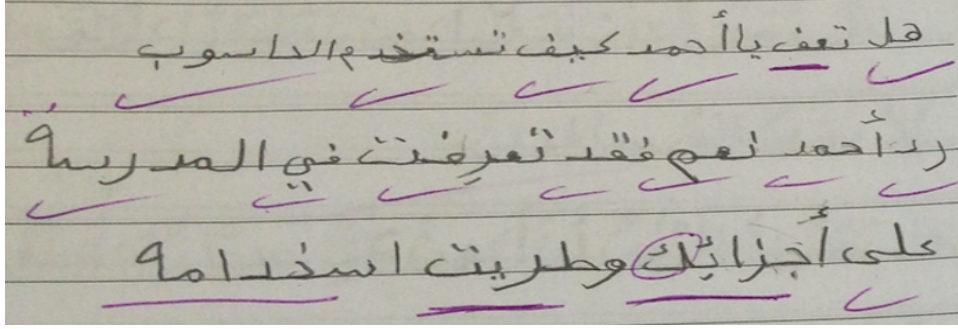 هل تعف يا أحمد كيف تستخدم الحاسوب
رد أحمد نعم فقد تعرفت في المدرسة
على أجزائك وطريت اسخدامه